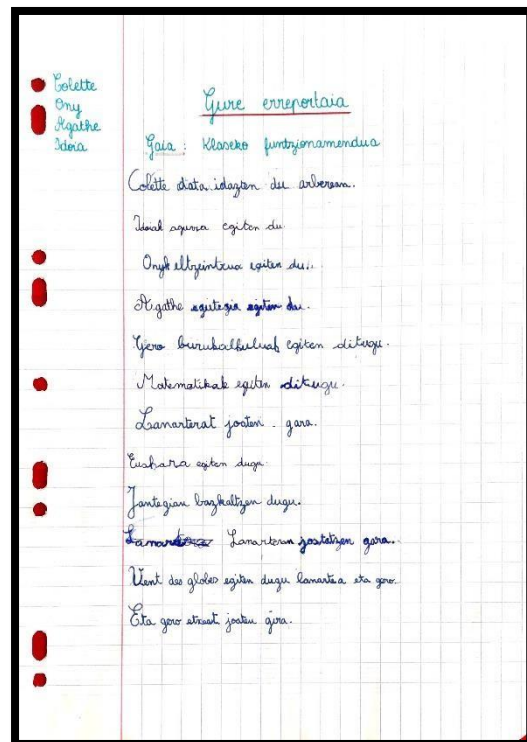 Colette
Ony
Agathe
Idoia
Gure erreportaia
Gaia : Klaseko funtzionamendua
Colette data idazten du arbelean.
Idoiak agurra egiten du
Onyk eltzeintrua egiten du..
Agathe egutegia egiten du.
Gero burukalkuluak egiten ditugu.
Matematikak egiten ditugu.
Lanarterat joaten gara.
Euskara egiten dugu.
Jantegian bazkaltzen dugu.
Lanartean jostatzen gara.
Vent des globes egiten dugu lanartea eta gero.
Eta gero etxeat joaten gira.